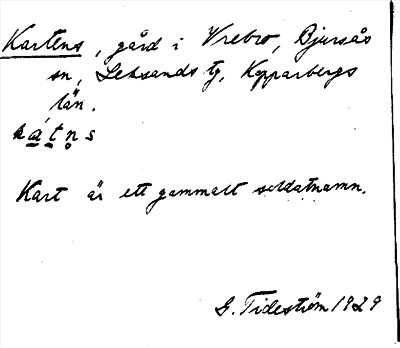 Kartens, gård i Vrebro, Bjursås
sn, Leksands tg, Kopparbergs
län.
kátn̥s
Kart är ett gammalt soldatnamn.
G. Tideström 1929